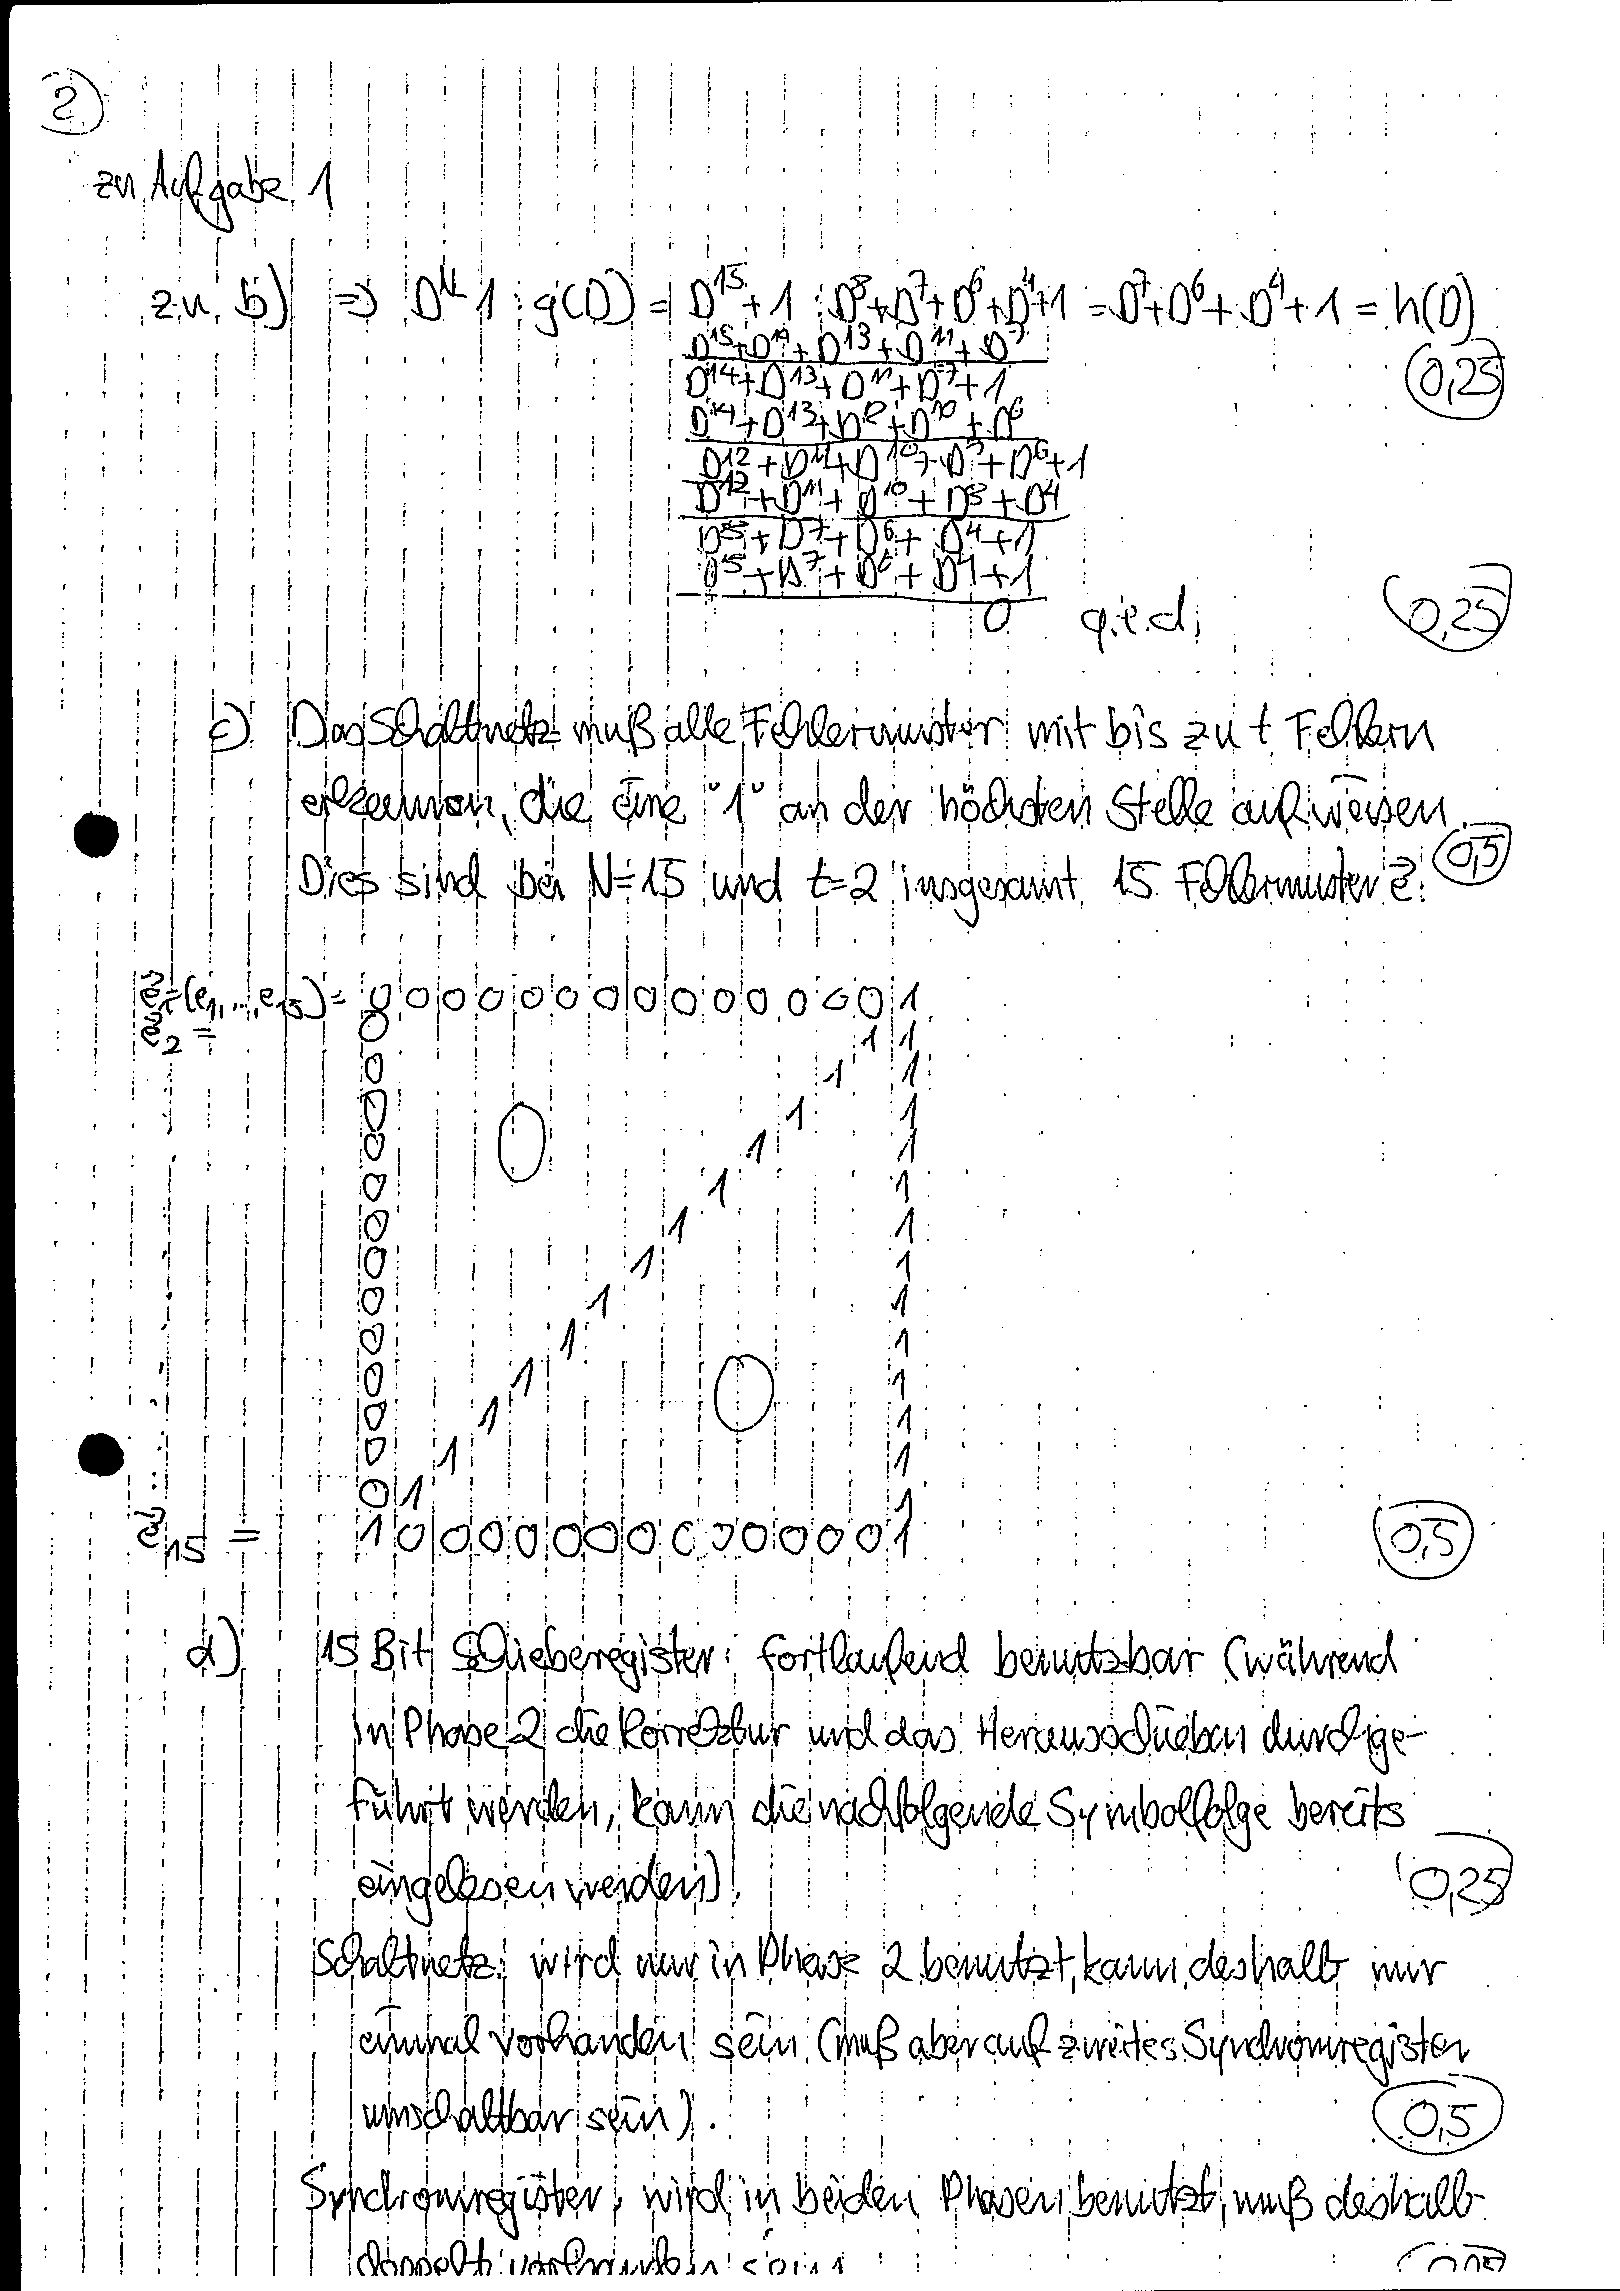 2)
zu Aufgabe 1
zu b) => D^N+1 : g(D) = D^15+1 : D^8+D^7+D^6+D^4+1 = D^7+D^6+D^4+1 = h(D)
D^15+D^14+D^13+D^11+D^7
(0,25)
D^14+D^13+D^11+D^7+1
D^14+D^13+D^12+D^10+D^6
D^12+D^11+D^10+D^7+D^6+1
D^12+D^11+D^10+D^8+D^4
D^8+D^7+D^6+D^4+1
D^8+D^7+D^6+D^4+1
0 q.e.d.
(0,25)
c) Das Schaltnetz muß alle Fehlermuster mit bis zu t Fehlern
erkennen, die eine "1" an der höchsten Stelle aufweisen.
(0,5)
Dies sind bei N=15 und t=2 insgesamt 15 Fehlermuster e⃗:
e⃗1=(e1,...,e15) = 0 0 0 0 0 0 0 0 0 0 0 0 0 0 1
e⃗2 = 0 1 1
0 1 1
0 1 1
0 0 1 1
0 1 1
0 1 1
0 1 1
0 1 1
0 1 1
0 1 1 0
0 1 1
0 1 1
0 1 1
e⃗15 = 1 0 0 0 0 0 0 0 0 0 0 0 0 0 1
(0,5)
d) 15 Bit Schieberegister: fortlaufend benutzbar (während
in Phase 2 die Korrektur und das Herausschieben durchge-
führt werden, kann die nachfolgende Symbolfolge bereits
eingelesen werden).
(0,25)
Schaltnetz: wird nur in Phase 2 benutzt, kann deshalb nur
einmal vorhanden sein (muß aber auf zweites Syndromregister
umschaltbar sein).
(0,5)
Syndromregister: wird in beiden Phasen benutzt, muß deshalb
doppelt vorhanden sein